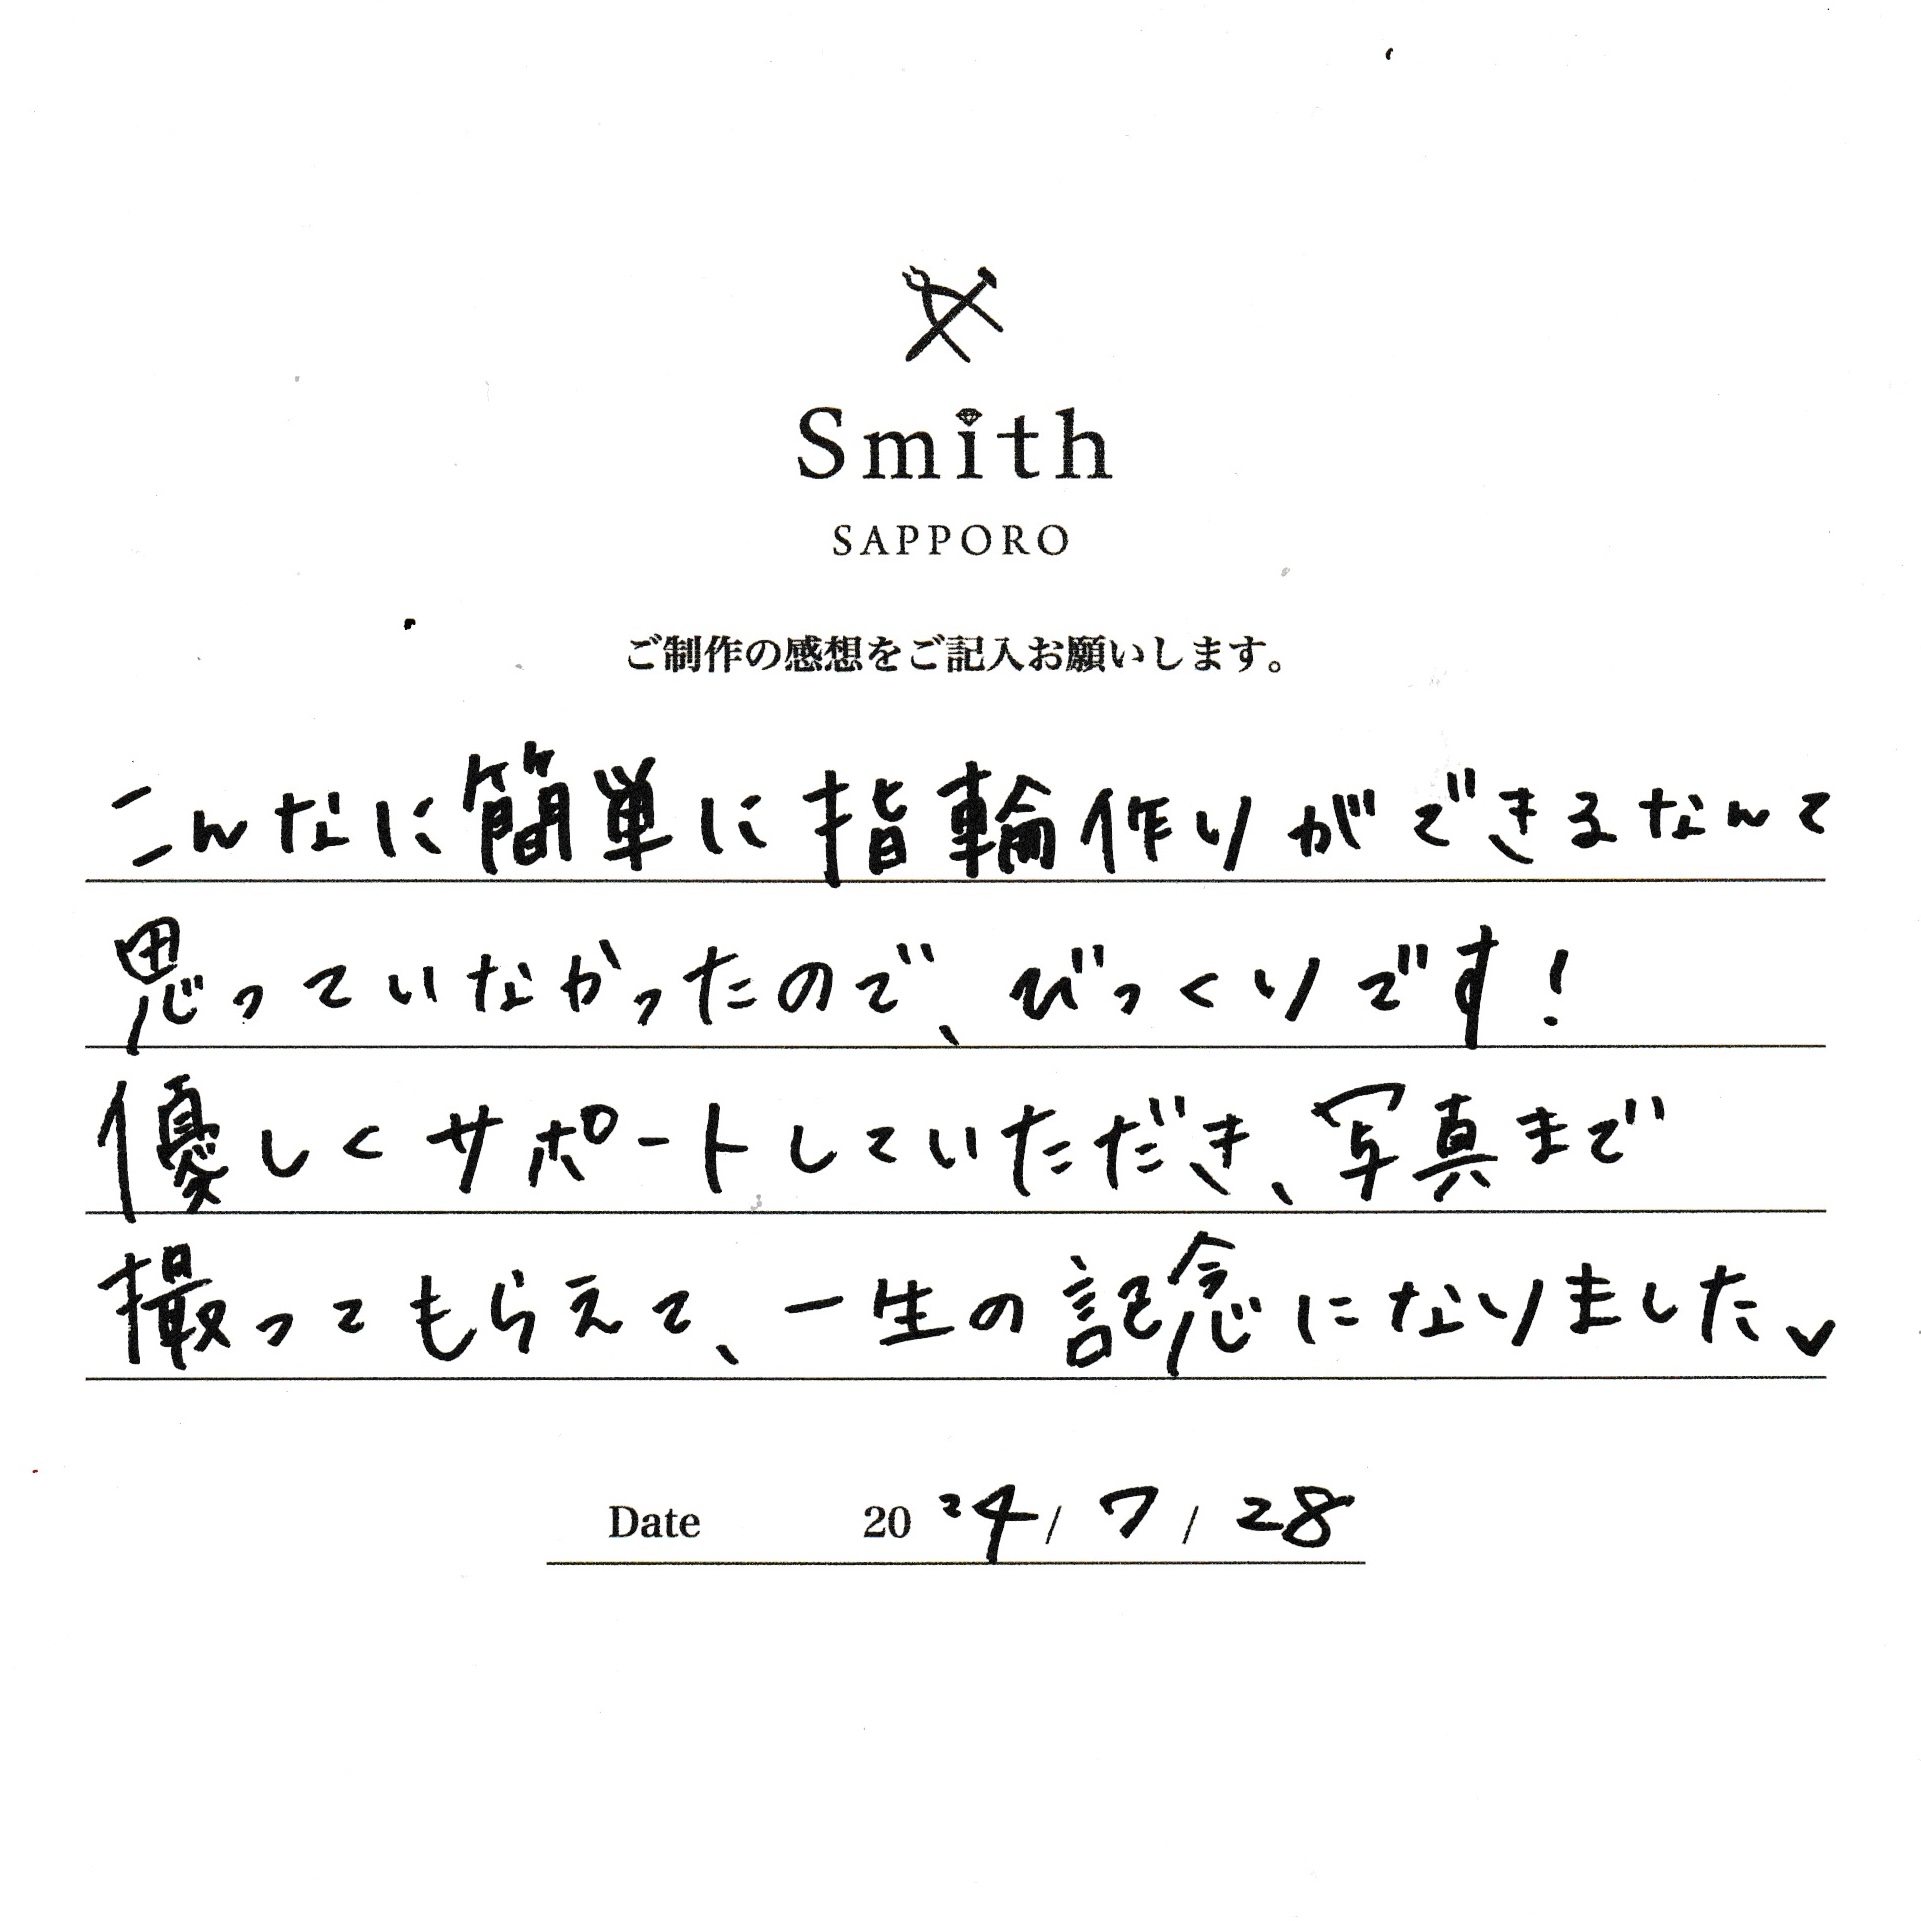 Smith
SAPPORO
ご制作の感想をご記入お願いします。
こんなに簡単に指輪作りができるなんて
思っていなかったので、びっくりです!
優しくサポートしていただき、写真まで
撮ってもらえて、一生の記念になりました
Date 2024/7/28